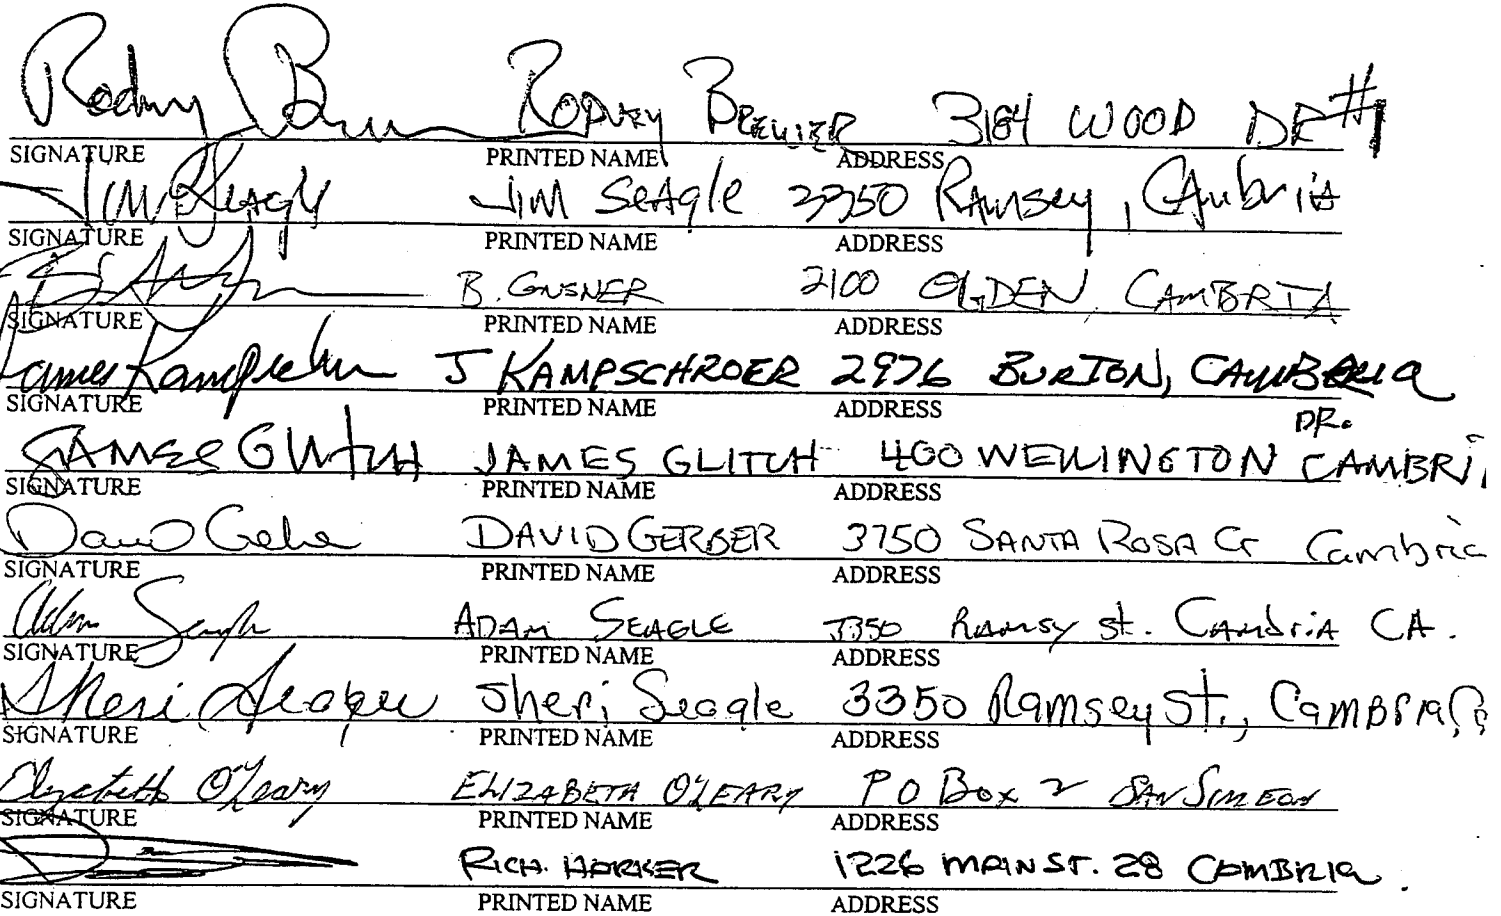 Rodney B RODNEY BREWER 3184 WOOD DR #1
SIGNATURE PRINTED NAME ADDRESS
Jim Seagle JIM SEAglE 3350 RAmsey, CAmbriA
SIGNATURE PRINTED NAME ADDRESS
B. GNSNER 2100 OGDEN, CAMBRIA
SIGNATURE PRINTED NAME ADDRESS
James Kampschroer J KAMPSCHROER 2976 BURTON, CAMBRIA
SIGNATURE PRINTED NAME ADDRESS
DR.
JAMES GLITCH JAMES GLITCH 400 WELLINGTON CAMBRI
SIGNATURE PRINTED NAME ADDRESS
David Gerber DAVID GERBER 3750 SANTA ROSA Cr Cambria
SIGNATURE PRINTED NAME ADDRESS
Adam Seagle ADAM SEAGLE 3350 RAMSY st. CAmbriA CA.
SIGNATURE PRINTED NAME ADDRESS
Sheri Seagle Sheri Seagle 3350 Ramsey St., CAMBRIA, Ca
SIGNATURE PRINTED NAME ADDRESS
Elizabeth O'Leary ELIZABETH O'LEARY P O Box 2 SAN SIMEON
SIGNATURE PRINTED NAME ADDRESS
RICH. HARKER 1226 MAIN ST. 28 CAMBRIA.
SIGNATURE PRINTED NAME ADDRESS